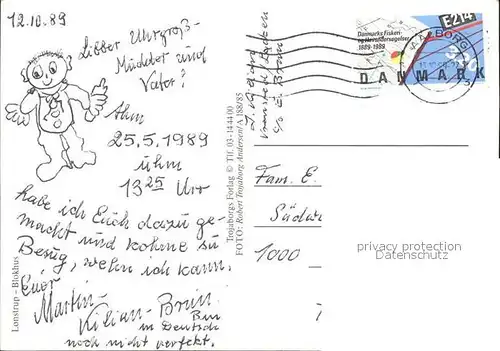 12.10.89
Libber Uhrgroß-
Müdder und
Vater!
Ahm
25.5.1989
ühm
13 25 Urr
habe ich Euch dazu ge-
mackt und kohme su
Besug, wehn ich kann.
Euer
Martin-
Kilian-Brün
Bin
in Deutsch
noch nicht perfekt.
Lonstrup - Blokhus
Trojaborgs Forlag © Tlf. 03-144400
FOTO: Robert Trojaborg Andersen/A 188/85
Danmarks Fiskeri-
og Havundersøgelser
1889-1989
DANMARK
AALBORG
Fam. E.
Südw
1000
privacy protection
Datenschutz